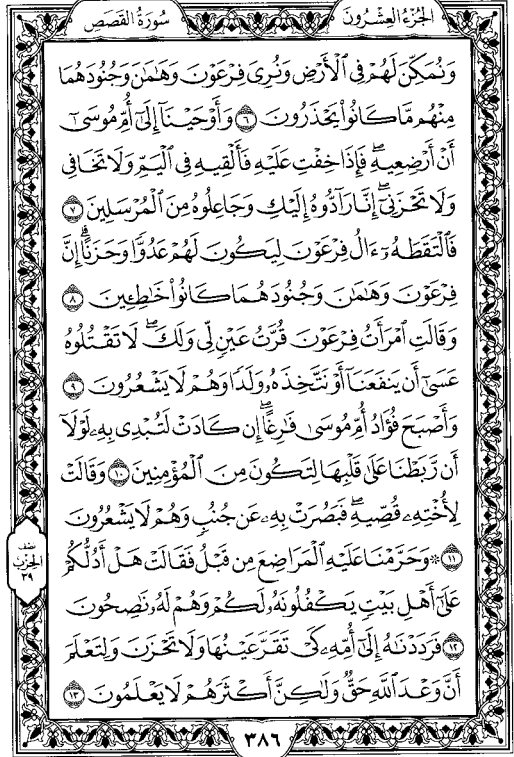 الجزء العشرون
سورة القصص
وَنُمَكِّنَ لَهُمْ فِي ٱلْأَرْضِ وَنُرِيَ فِرْعَوْنَ وَهَٰمَٰنَ وَجُنُودَهُمَا
مِنْهُم مَّا كَانُوا۟ يَحْذَرُونَ ٦ وَأَوْحَيْنَآ إِلَىٰٓ أُمِّ مُوسَىٰٓ
أَنْ أَرْضِعِيهِ ۖ فَإِذَا خِفْتِ عَلَيْهِ فَأَلْقِيهِ فِي ٱلْيَمِّ وَلَا تَخَافِي
وَلَا تَحْزَنِيٓ ۖ إِنَّا رَآدُّوهُ إِلَيْكِ وَجَاعِلُوهُ مِنَ ٱلْمُرْسَلِينَ ٧
فَٱلْتَقَطَهُۥٓ ءَالُ فِرْعَوْنَ لِيَكُونَ لَهُمْ عَدُوًّا وَحَزَنًا ۗ إِنَّ
فِرْعَوْنَ وَهَٰمَٰنَ وَجُنُودَهُمَا كَانُوا۟ خَٰطِـِٔينَ ٨
وَقَالَتِ ٱمْرَأَتُ فِرْعَوْنَ قُرَّتُ عَيْنٍ لِّي وَلَكَ ۖ لَا تَقْتُلُوهُ
عَسَىٰٓ أَن يَنفَعَنَآ أَوْ نَتَّخِذَهُۥ وَلَدًا وَهُمْ لَا يَشْعُرُونَ ٩
وَأَصْبَحَ فُؤَادُ أُمِّ مُوسَىٰ فَٰرِغًا ۖ إِن كَادَتْ لَتُبْدِي بِهِۦ لَوْلَآ
أَن رَّبَطْنَا عَلَىٰ قَلْبِهَا لِتَكُونَ مِنَ ٱلْمُؤْمِنِينَ ١٠ وَقَالَتْ
لِأُخْتِهِۦ قُصِّيهِ ۖ فَبَصُرَتْ بِهِۦ عَن جُنُبٍ وَهُمْ لَا يَشْعُرُونَ
١١ ۞ وَحَرَّمْنَا عَلَيْهِ ٱلْمَرَاضِعَ مِن قَبْلُ فَقَالَتْ هَلْ أَدُلُّكُمْ
عَلَىٰٓ أَهْلِ بَيْتٍ يَكْفُلُونَهُۥ لَكُمْ وَهُمْ لَهُۥ نَٰصِحُونَ
١٢ فَرَدَدْنَٰهُ إِلَىٰٓ أُمِّهِۦ كَيْ تَقَرَّ عَيْنُهَا وَلَا تَحْزَنَ وَلِتَعْلَمَ
أَنَّ وَعْدَ ٱللَّهِ حَقٌّ وَلَٰكِنَّ أَكْثَرَهُمْ لَا يَعْلَمُونَ ١٣
نصف
الحزب
٣٩
٣٨٦